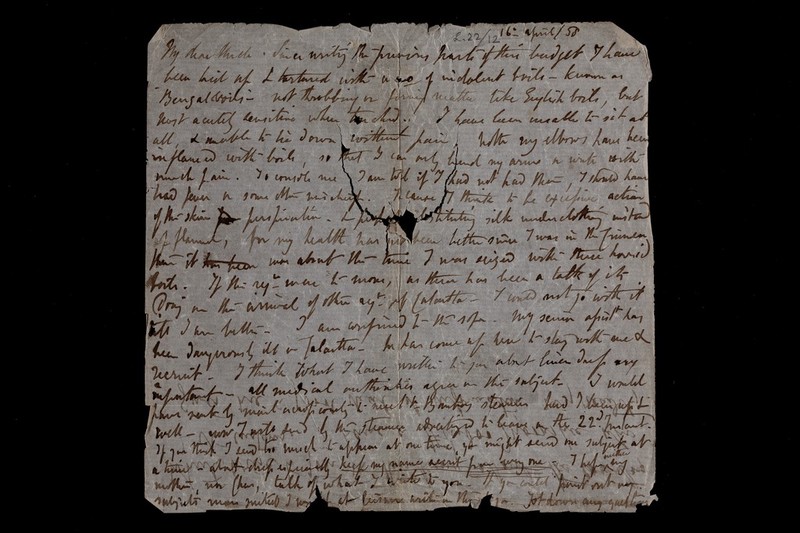 L. 22/12 16th april/58
My dear Uncle. Since writing the previous parts of this budget I have
been laid up & tortured with a no of indolent boils - known as
Bengal boils - not throbbing or forming matter like English boils, but
most acutely sensitive when touched. I have been unable to sit at
all, & unable to lie down without pain. Both my elbows have been
inflamed with boils, so that I can only bend my arms or write with
much pain. To console me I am told if I had not had them, I should have
had fever or some other mischief. The cause I think to be excessive action
of the skin perspiration. & substituting silk underclothing instead
of flannel, for my health has been better since I was in the Crimea
than it has been was about the time I was seized with these horrid
boils. If the regt were to move, as there has been a talk of its
doing on the arrival of other regts at Calcutta - I could not go with it
till I am better - I am confined to the sofa. My senior assist has
been dangerously ill in Calcutta - He has come up here to stay with me &
recruit I think what I have written to you about linen very
important - all medical authorities agree on the subject. I would
have sent by mail to Bombay steamer had I been up &
well - now I must send by the steamer advertized to leave on the 22nd instant.
If you think I send too much to appear at one time, you might send one subject at
a time - about keep my name secret from every one. I hope neither
mother, nor talk of what I write to you. If you could point out any
subjects more suited I might at leisure Jot down any questions